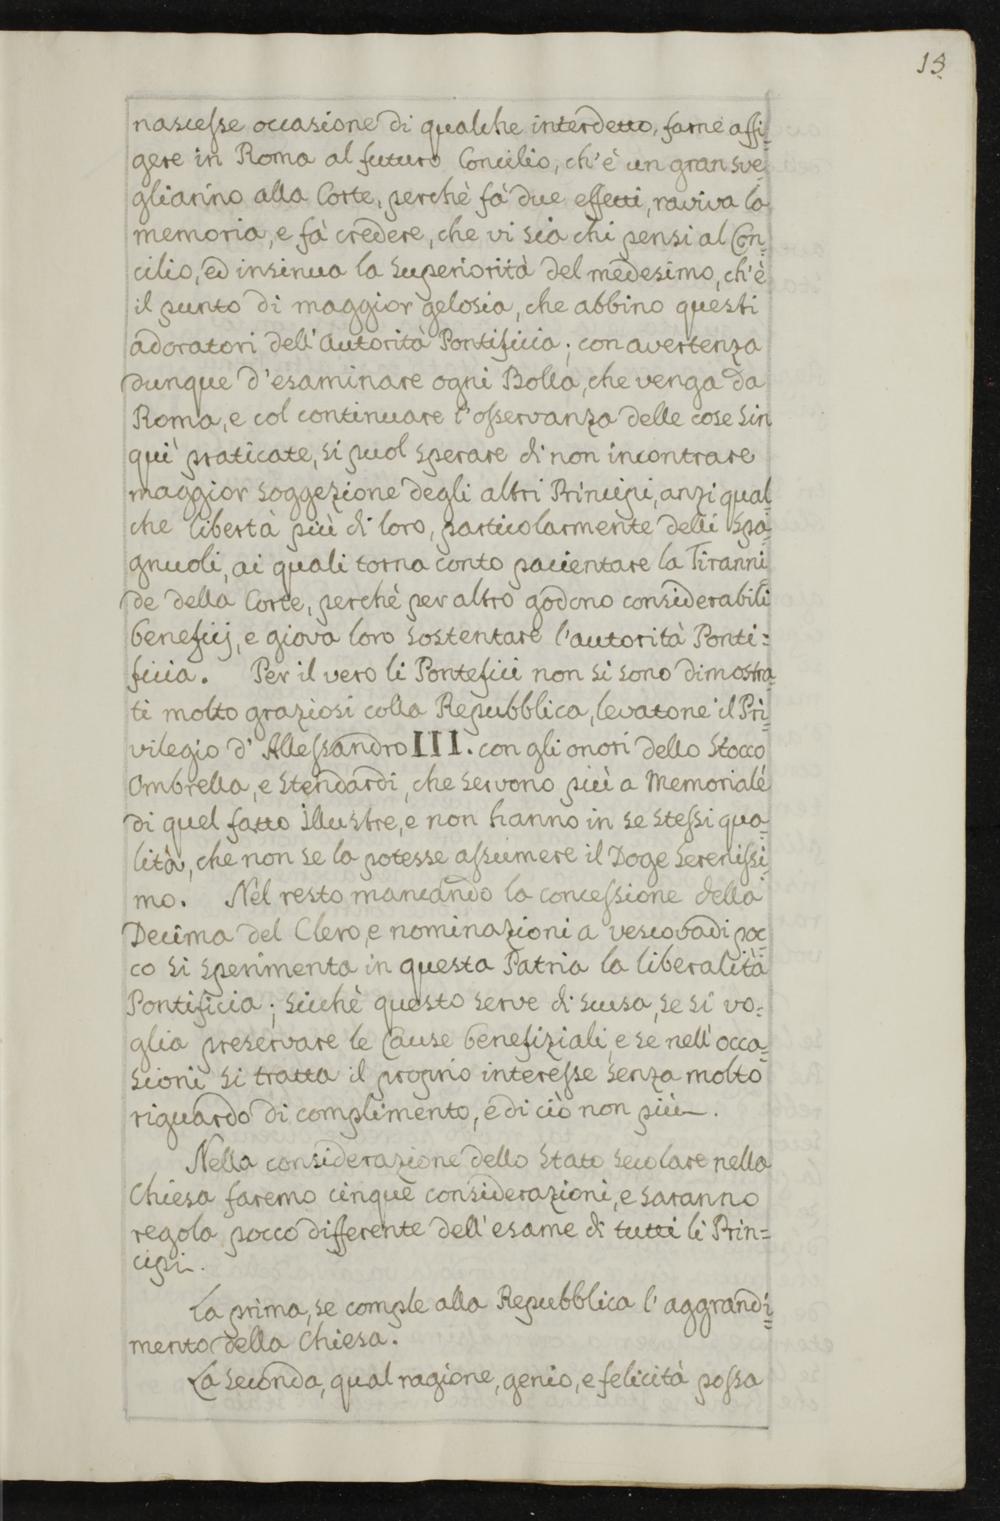 13
nascesse occasione di qualche interdetto, farne affi=
gere in Roma al futuro Concilio, ch'è un gran sve=
gliarino alla Corte, perchè fà due effetti, raviva la
memoria, e fà credere, che vi sia chi pensi al Con=
cilio, ed insinua la superiorità del medesimo, ch'è
il punto di maggior gelosia, che abbino questi
adoratori dell'autorità Pontificia; con avertenza
dunque d'esaminare ogni Bolla, che venga da
Roma, e col continuare l'osservanza delle cose sin
quì praticate, si puol sperare di non incontrare
maggior soggezione degli altri Principi, anzi qual=
che libertà più di loro, particolarmente delli Spa=
gnuoli, ai quali torna conto pacientare la Tiranni=
de della Corte, perchè per altro godono considerabili
beneficij, e giova loro sostentare l'autorità Ponti=
ficia. Per il vero li Pontefici non si sono dimostra=
ti molto graziosi colla Repubblica, levatone il Pri=
vilegio d'Allessandro III. con gli onori dello Stocco
Ombrella, e Stendardi, che servono più a Memoriale
di quel fatto illustre, e non hanno in se stessi qua=
lità, che non se la potesse assumere il Doge Serenissi=
mo. Nel resto mancando la concessione della
Decima del Clero, e nominazioni a vescovadi poc=
co si sperimenta in questa Patria la liberalità
Pontificia; sicchè questo serve di scusa, se si vo=
glia preservare le Cause benefiziali, e se nell'occa=
sioni si tratta il proprio interesse senza molto
riguardo di complimento, e di ciò non più.
Nella considerazione dello Stato secolare nella
Chiesa faremo cinque considerazioni, e saranno
regola pocco differente dell'esame di tutti li Prin=
cipi.
La prima, se comple alla Repubblica l'aggrandi=
mento della Chiesa.
La seconda, qual ragione, genio, e felicità possa